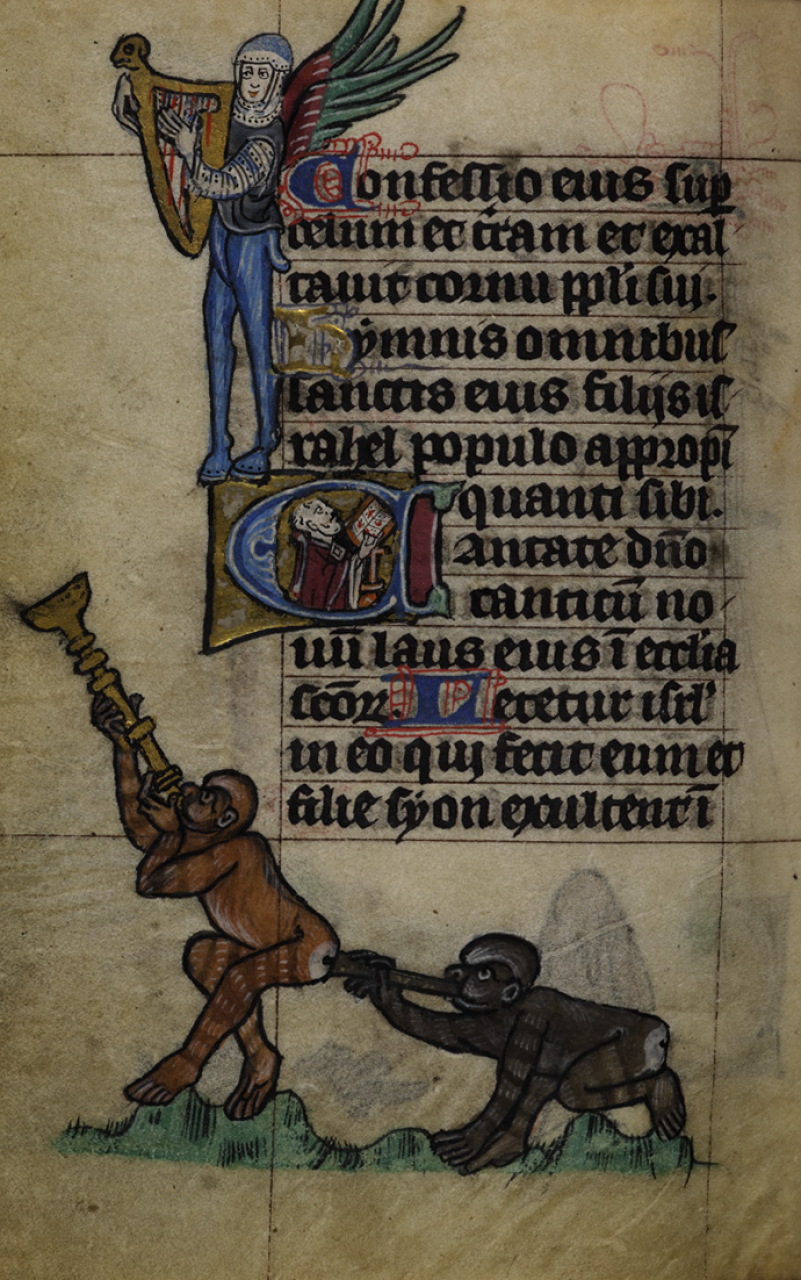 Confessio eius sup
celum et t̄ram et exal
tauit cornu ppli sui.
Hymnis omnibus
sanctis eius filijs is
rahel populo appropi
quanti sibi.
Cantate dn̄o
canticū no
uū laus eius ī ecclia
scōꝝ. Letetur isrl'
in eo qui fecit eum et
filie syon exultent ī